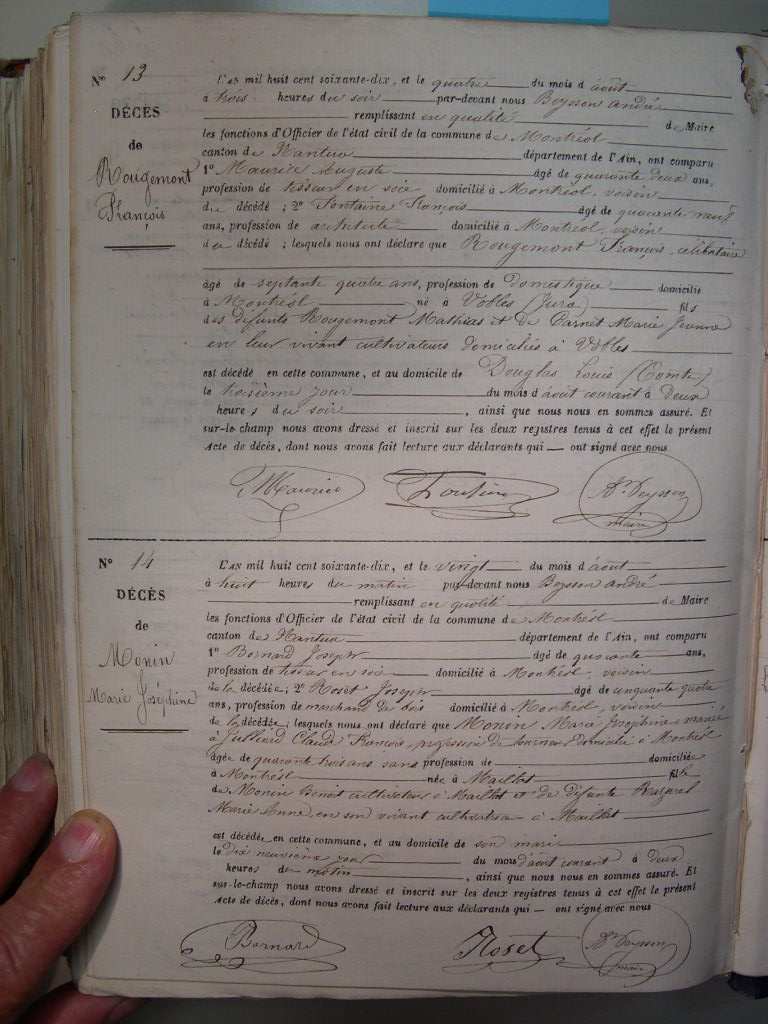 N° 13
DÉCÈS
de
Rougemont
François
L'AN mil huit cent soixante-dix, et le quatre du mois d'août
à trois heures du soir par-devant nous Beysson André
remplissant en qualité de Maire
les fonctions d'Officier de l'état civil de la commune de Montréal
canton de Nantua département de l'Ain, ont comparu
1° Maurice Auguste âgé de quarante deux ans,
profession de tisseur en soie domicilié à Montréal, voisin
du décédé ; 2° Fontaine François âgé de quarante neuf
ans, profession de architecte domicilié à Montréal, voisin
du décédé ; lesquels nous ont déclaré que Rougemont François, célibataire
âgé de septante quatre ans, profession de domestique domicilié
à Montréal né à Vobles (Jura) fils
des défunts Rougemont Mathias et de Carnet Marie Jeanne
en leur vivant cultivateurs domiciliés à Vobles
est décédé en cette commune, et au domicile de Douglas Louis (Comte)
le troisième jour du mois d'août courant à deux
heures du soir, ainsi que nous nous en sommes assuré. Et
sur-le-champ nous avons dressé et inscrit sur les deux registres tenus à cet effet le présent
Acte de décès, dont nous avons fait lecture aux déclarants qui — ont signé avec nous
Maurice Fontaine An Beysson
maire
N° 14
DÉCÈS
de
Monin
Marie Joséphine
L'AN mil huit cent soixante-dix, et le vingt du mois d'août
à huit heures du matin par-devant nous Beysson André
remplissant en qualité de Maire
les fonctions d'Officier de l'état civil de la commune de Montréal
canton de Nantua département de l'Ain, ont comparu
1° Bernard Joseph âgé de quarante ans,
profession de tisseur en soie domicilié à Montréal, voisin
de la décédée; 2° Roset Joseph âgé de cinquante quatre
ans, profession de marchand de bois domicilié à Montréal, voisin
de la décédée; lesquels nous ont déclaré que Monin Marie Joséphine mariée
à Julliard Claude François, profession de domicilié à Montréal
âgée de quarante trois ans sans profession de domiciliée
à Montréal née à Maillat fille
de Monin Benoit cultivateur à Maillat et de défunte
Marie Anne, en son vivant cultivatrice à Maillat
est décédée en cette commune, et au domicile de son mari
le dix neuvième jour du mois d'août courant à deux
heures du matin, ainsi que nous nous en sommes assuré. Et
sur-le-champ nous avons dressé et inscrit sur les deux registres tenus à cet effet le présent
Acte de décès, dont nous avons fait lecture aux déclarants qui — ont signé avec nous
Bernard Roset An Beysson
maire